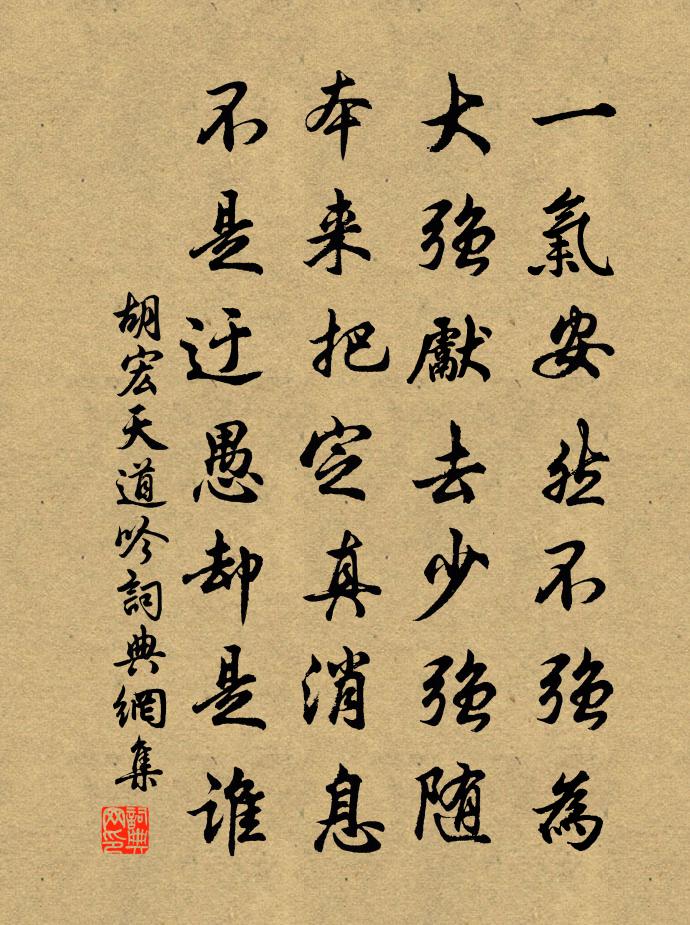 一氣安然不強為
大強獻去少強随
本来把定真消息
不是迂愚却是誰
胡宏天道吟詞典網集
詞典
网印